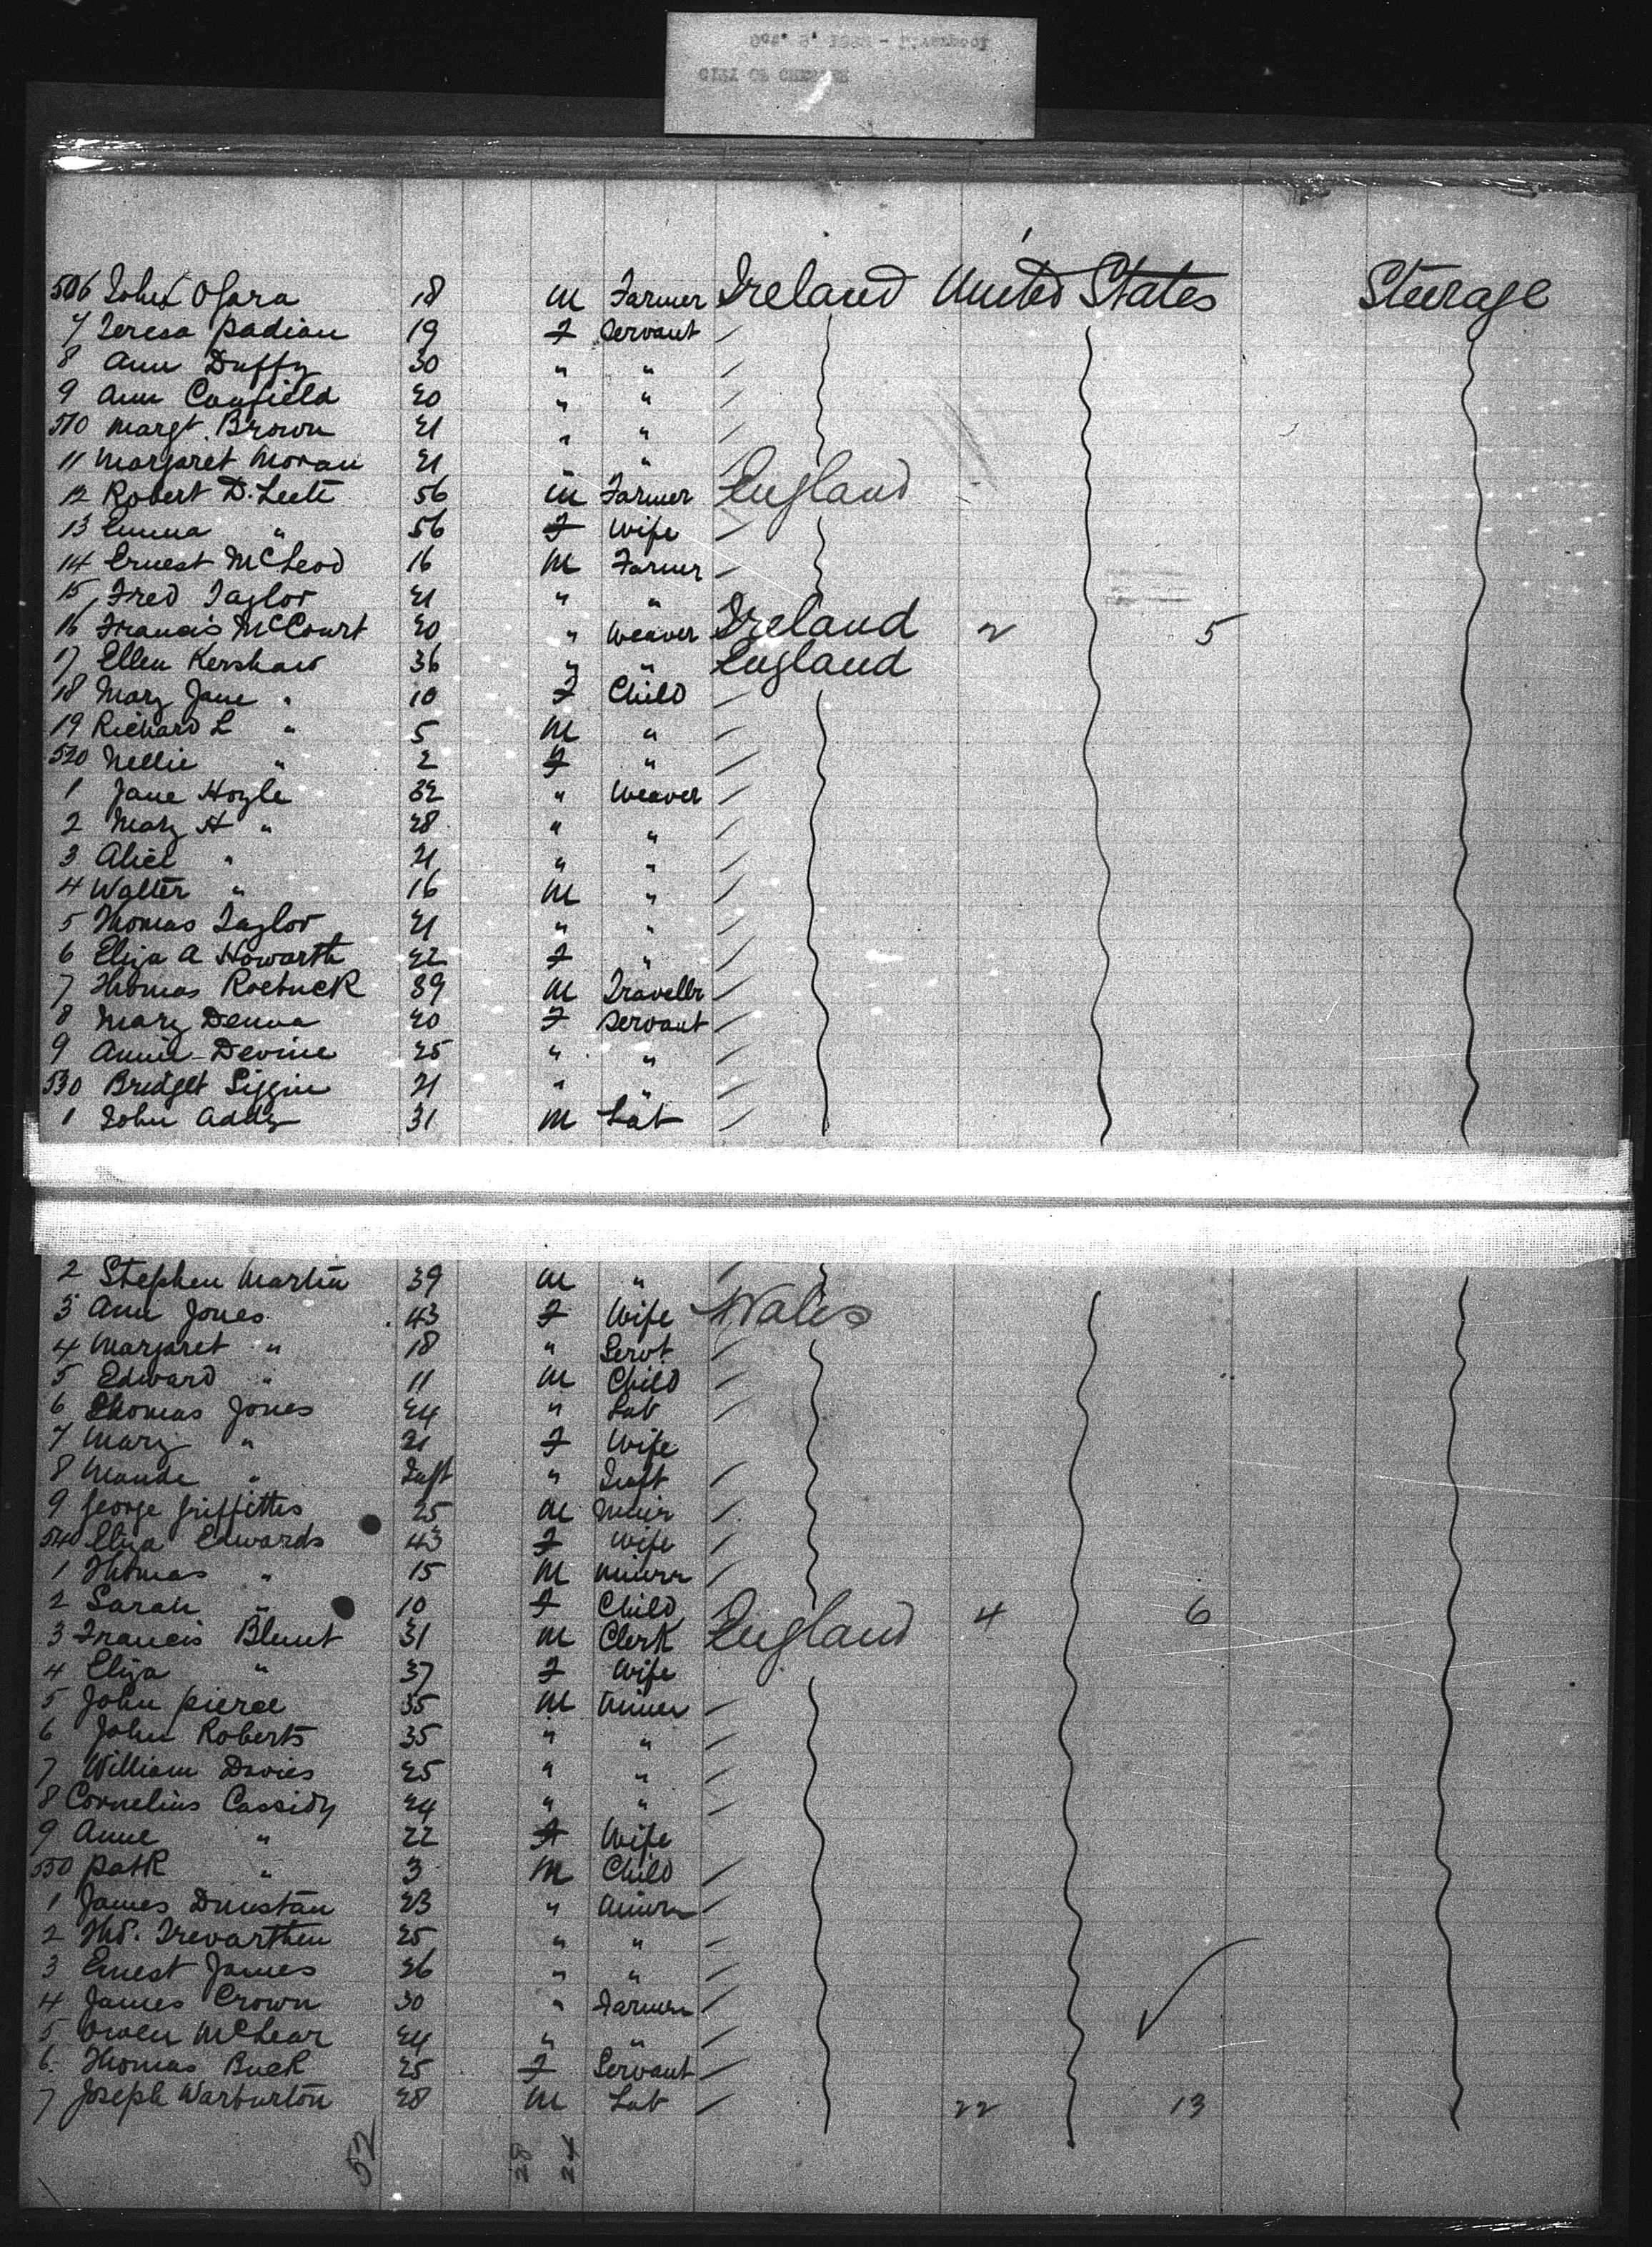 CITY OF CHESTER
506 John OGara 18 M Farmer Ireland United States Steerage
7 Teresa Padian 19 F Servant
8 Ann Duffy 30 " "
9 Ann Canfield 20 " "
510 Margt. Brown 21 " "
11 Margaret Moran 21 "
12 Robert D. Leete 56 M Farmer England
13 Emma " 56 F Wife
14 Ernest McLeod 16 M Farmer
15 Fred Taylor 21 " "
16 Francis McCourt 20 " Weaver Ireland 2 5
17 Ellen Kershaw 36 " " England
18 Mary Jane " 10 F Child
19 Richard L " 5 M "
520 Nellie " 2 F "
1 Jane Hoyle 32 " Weaver
2 Mary A " 28 " "
3 Alice " 21 " "
4 Walter " 16 M "
5 Thomas Taylor 21 " "
6 Eliza A Howarth 22 F "
7 Thomas Roebuck 39 M Travellr
8 Mary Denna 20 F Servant
9 Annie Devine 25 " "
530 Bridget Siggin 21 " "
1 John Addy 31 M Lab
2 Stephen Martin 39 M "
3 Ann Jones 43 F Wife Wales
4 Margaret " 18 " Servt
5 Edward " 11 M Child
6 Thomas Jones 24 " Lab
7 Mary " 21 F Wife
8 Maude " Inft " Inft
9 George Griffiths 25 M Miner
540 Eliza Edwards 43 F Wife
1 Thomas " 15 M Miner
2 Sarah " 10 F Child 4 6
3 Francis Blunt 31 M Clerk England
4 Eliza " 37 F Wife
5 John Pierce 35 M Miner
6 John Roberts 35 " "
7 William Davies 25 " "
8 Cornelius Cassidy 24 " "
9 Anne " 22 F Wife
550 Patk " 3 M Child
1 James Dunstan 23 " Miner
2 Thos. Trevarthen 25 " "
3 Ernest James 26 " "
4 James Crown 30 " Farmer
5 Owen McLear 24 " "
6 Thomas Buck 25 F Servant
7 Joseph Warburton 28 M Lab 22 13
52 28 24